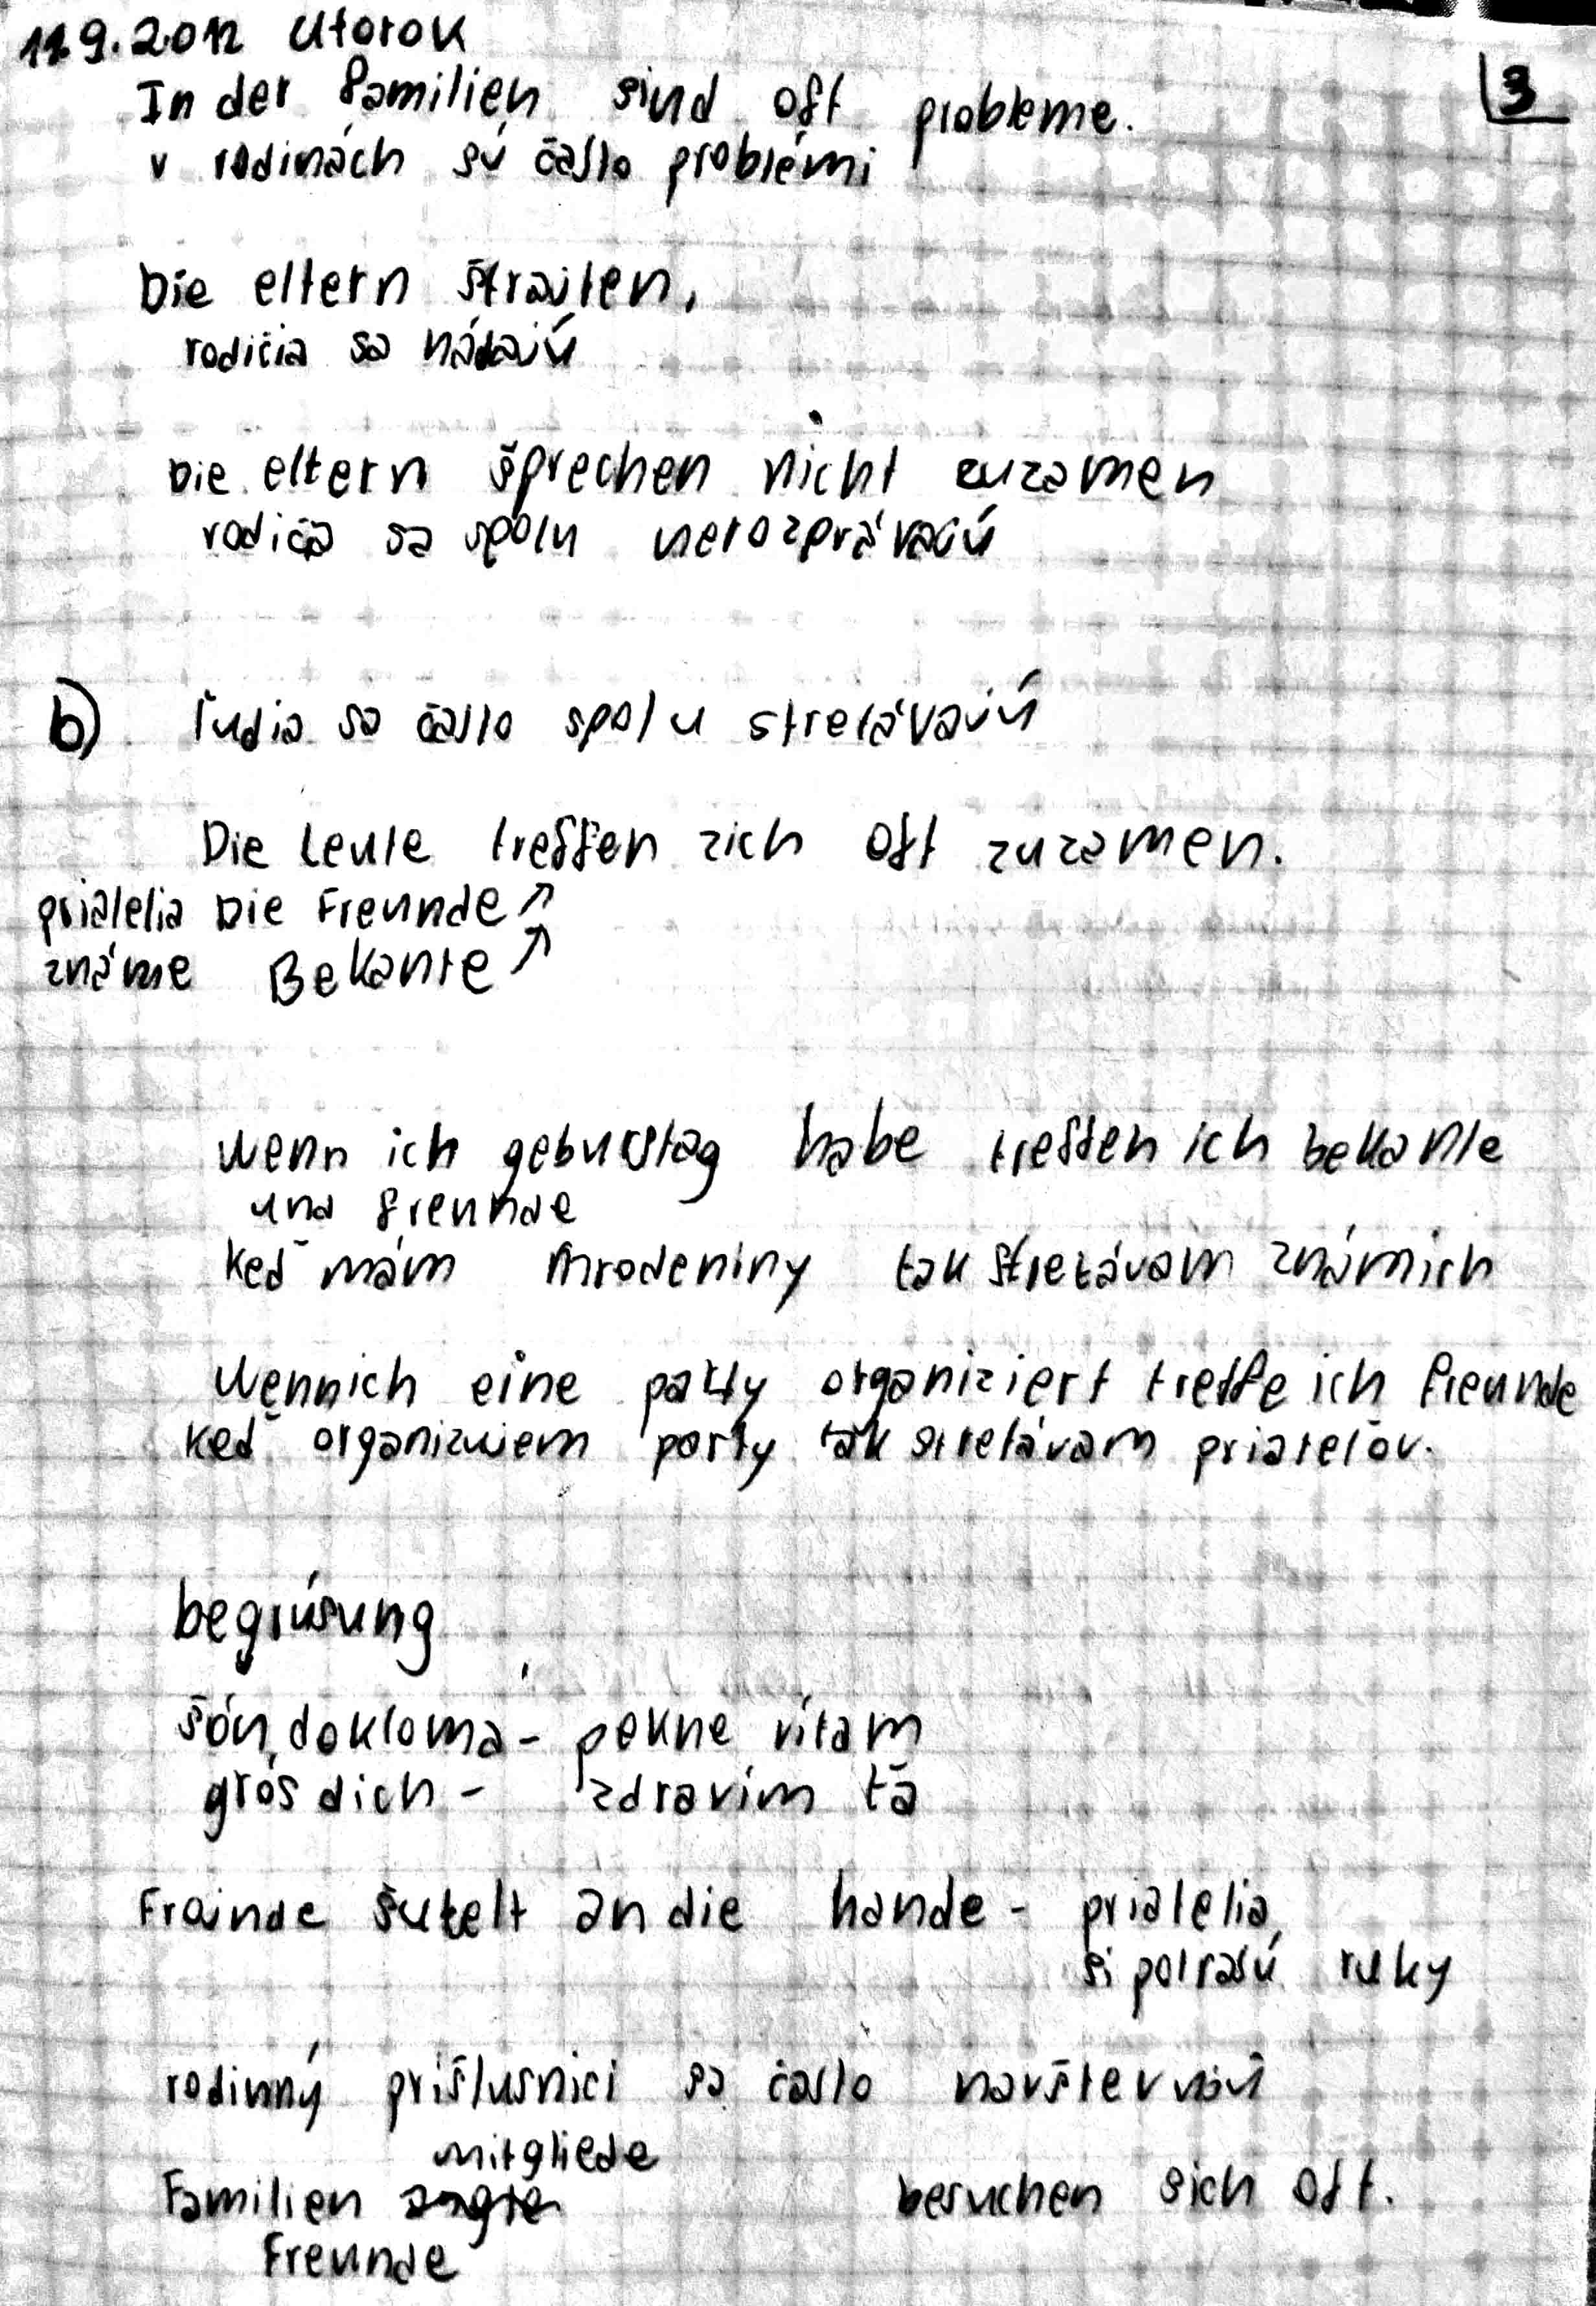 11.9.2012 Utorok
3
In der familien sind oft probleme.
v rodinách sú často problémi
Die eltern štrajten,
rodičia sa hádajú
Die eltern šprechen nicht zuzamen
rodičia sa spolu nerozprávajú
b) ľudia sa často spolu stretávajú
Die Leute treffen zich oft zuzamen.
priatelia Die Freunde ↗
známe Bekante ↗
Wenn ich geburstag habe treffen ich bekante
und freunde
keď mám narodeniny tak stretávam známich
Wennich eine party organiziert treffe ich freunde
keď organizujem party tak stretávam priateľov.
begrúsung
šón dokloma - pekne vítam
grós dich - zdravím ťa
Frainde šutelt an die hande - priatelia
si potrasú ruky
rodinný príšlusnici sa často navštevujú
mitgliede
Familien besuchen sich oft.
Freunde